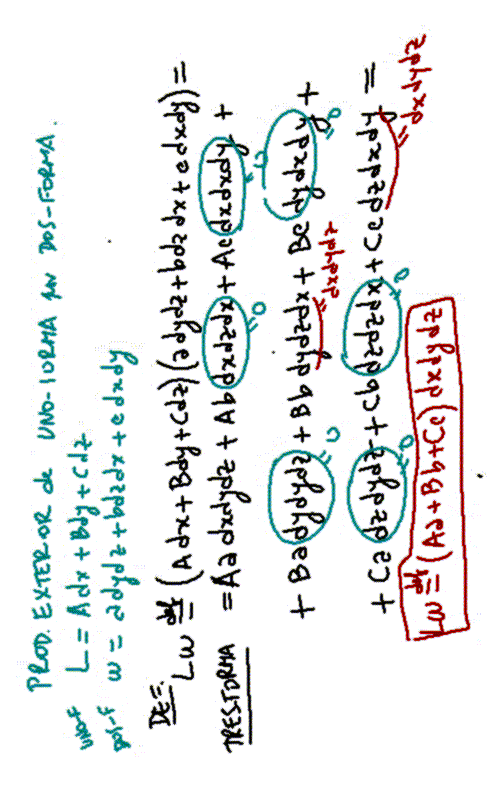 PROD. EXTERIOR de UNO-FORMA por DOS-FORMA.
UNO-F L = Adx + Bdy + Cdz
DOS-F ω = adydz + bdzdx + edxdy
DEF: Lω def= (Adx + Bdy + Cdz)(adydz + bdzdx + edxdy) =
TRESFORMA = Aa dxdydz + Ab dxdzdx + Ae dxdxdy +
=0 =0
+ Ba dydydz + Bb dydzdx + Be dydxdy +
=0 = dxdydz =0
+ Ca dzdydz + Cb dzdzdx + Ce dzdxdy =
=0 =0 = dxdydz
Lω def= (Aa + Bb + Ce) dxdydz